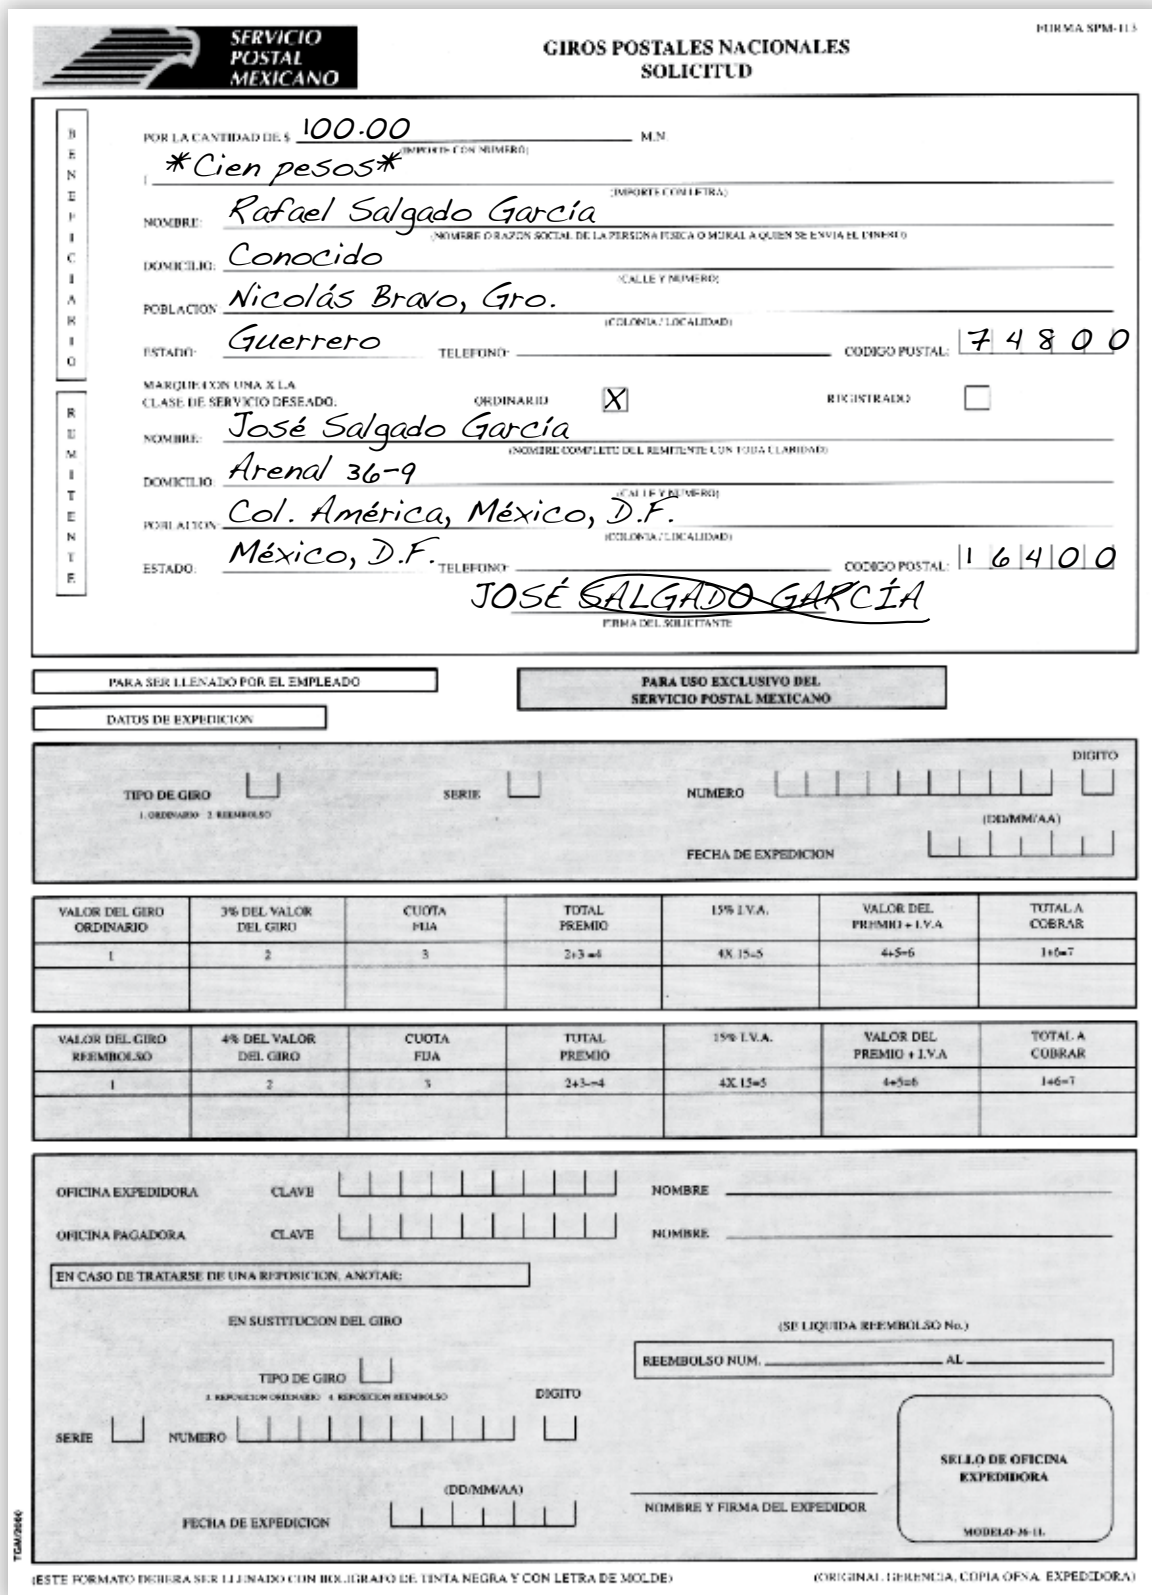 FORMA SPM-113
SERVICIO
POSTAL
MEXICANO
GIROS POSTALES NACIONALES
SOLICITUD
BENEFICIARIO
POR LA CANTIDAD DE $ 100.00 M.N.
(IMPORTE CON NUMERO)
( *Cien pesos*
(IMPORTE CON LETRA)
NOMBRE: Rafael Salgado García
(NOMBRE O RAZON SOCIAL DE LA PERSONA FISICA O MORAL A QUIEN SE ENVIA EL DINERO)
DOMICILIO: Conocido
(CALLE Y NUMERO)
POBLACION: Nicolás Bravo, Gro.
(COLONIA / LOCALIDAD)
ESTADO: Guerrero TELEFONO: CODIGO POSTAL: 74800
MARQUE CON UNA X LA
CLASE DE SERVICIO DESEADO. ORDINARIO X REGISTRADO
REMITENTE
NOMBRE: José Salgado García
(NOMBRE COMPLETO DEL REMITENTE CON TODA CLARIDAD)
DOMICILIO: Arenal 36-9
(CALLE Y NUMERO)
POBLACION: Col. América, México, D.F.
(COLONIA / LOCALIDAD)
ESTADO: México, D.F. TELEFONO: CODIGO POSTAL: 16400
JOSÉ SALGADO GARCÍA
FIRMA DEL SOLICITANTE
PARA SER LLENADO POR EL EMPLEADO
PARA USO EXCLUSIVO DEL
SERVICIO POSTAL MEXICANO
DATOS DE EXPEDICION
DIGITO
TIPO DE GIRO SERIE NUMERO
1. ORDINARIO 2. REEMBOLSO
(DD/MM/AA)
FECHA DE EXPEDICION
VALOR DEL GIRO ORDINARIO 3% DEL VALOR DEL GIRO CUOTA FIJA TOTAL PREMIO 15% I.V.A. VALOR DEL PREMIO + I.V.A TOTAL A COBRAR
1 2 3 2+3=4 4X.15=5 4+5=6 1+6=7
VALOR DEL GIRO REEMBOLSO 4% DEL VALOR DEL GIRO CUOTA FIJA TOTAL PREMIO 15% I.V.A. VALOR DEL PREMIO + I.V.A TOTAL A COBRAR
1 2 3 2+3=4 4X.15=5 4+5=6 1+6=7
OFICINA EXPEDIDORA CLAVE NOMBRE
OFICINA PAGADORA CLAVE NOMBRE
EN CASO DE TRATARSE DE UNA REPOSICION, ANOTAR:
EN SUSTITUCION DEL GIRO
(SE LIQUIDA REEMBOLSO No.)
REEMBOLSO NUM. AL
TIPO DE GIRO
3. REPOSICION ORDINARIO 4. REPOSICION REEMBOLSO
DIGITO
SERIE NUMERO
SELLO DE OFICINA
EXPEDIDORA
MODELO-36-11.
(DD/MM/AA)
FECHA DE EXPEDICION
NOMBRE Y FIRMA DEL EXPEDIDOR
TGM/2000
(ESTE FORMATO DEBERA SER LLENADO CON BOLIGRAFO DE TINTA NEGRA Y CON LETRA DE MOLDE)
(ORIGINAL GERENCIA, COPIA OFNA. EXPEDIDORA)